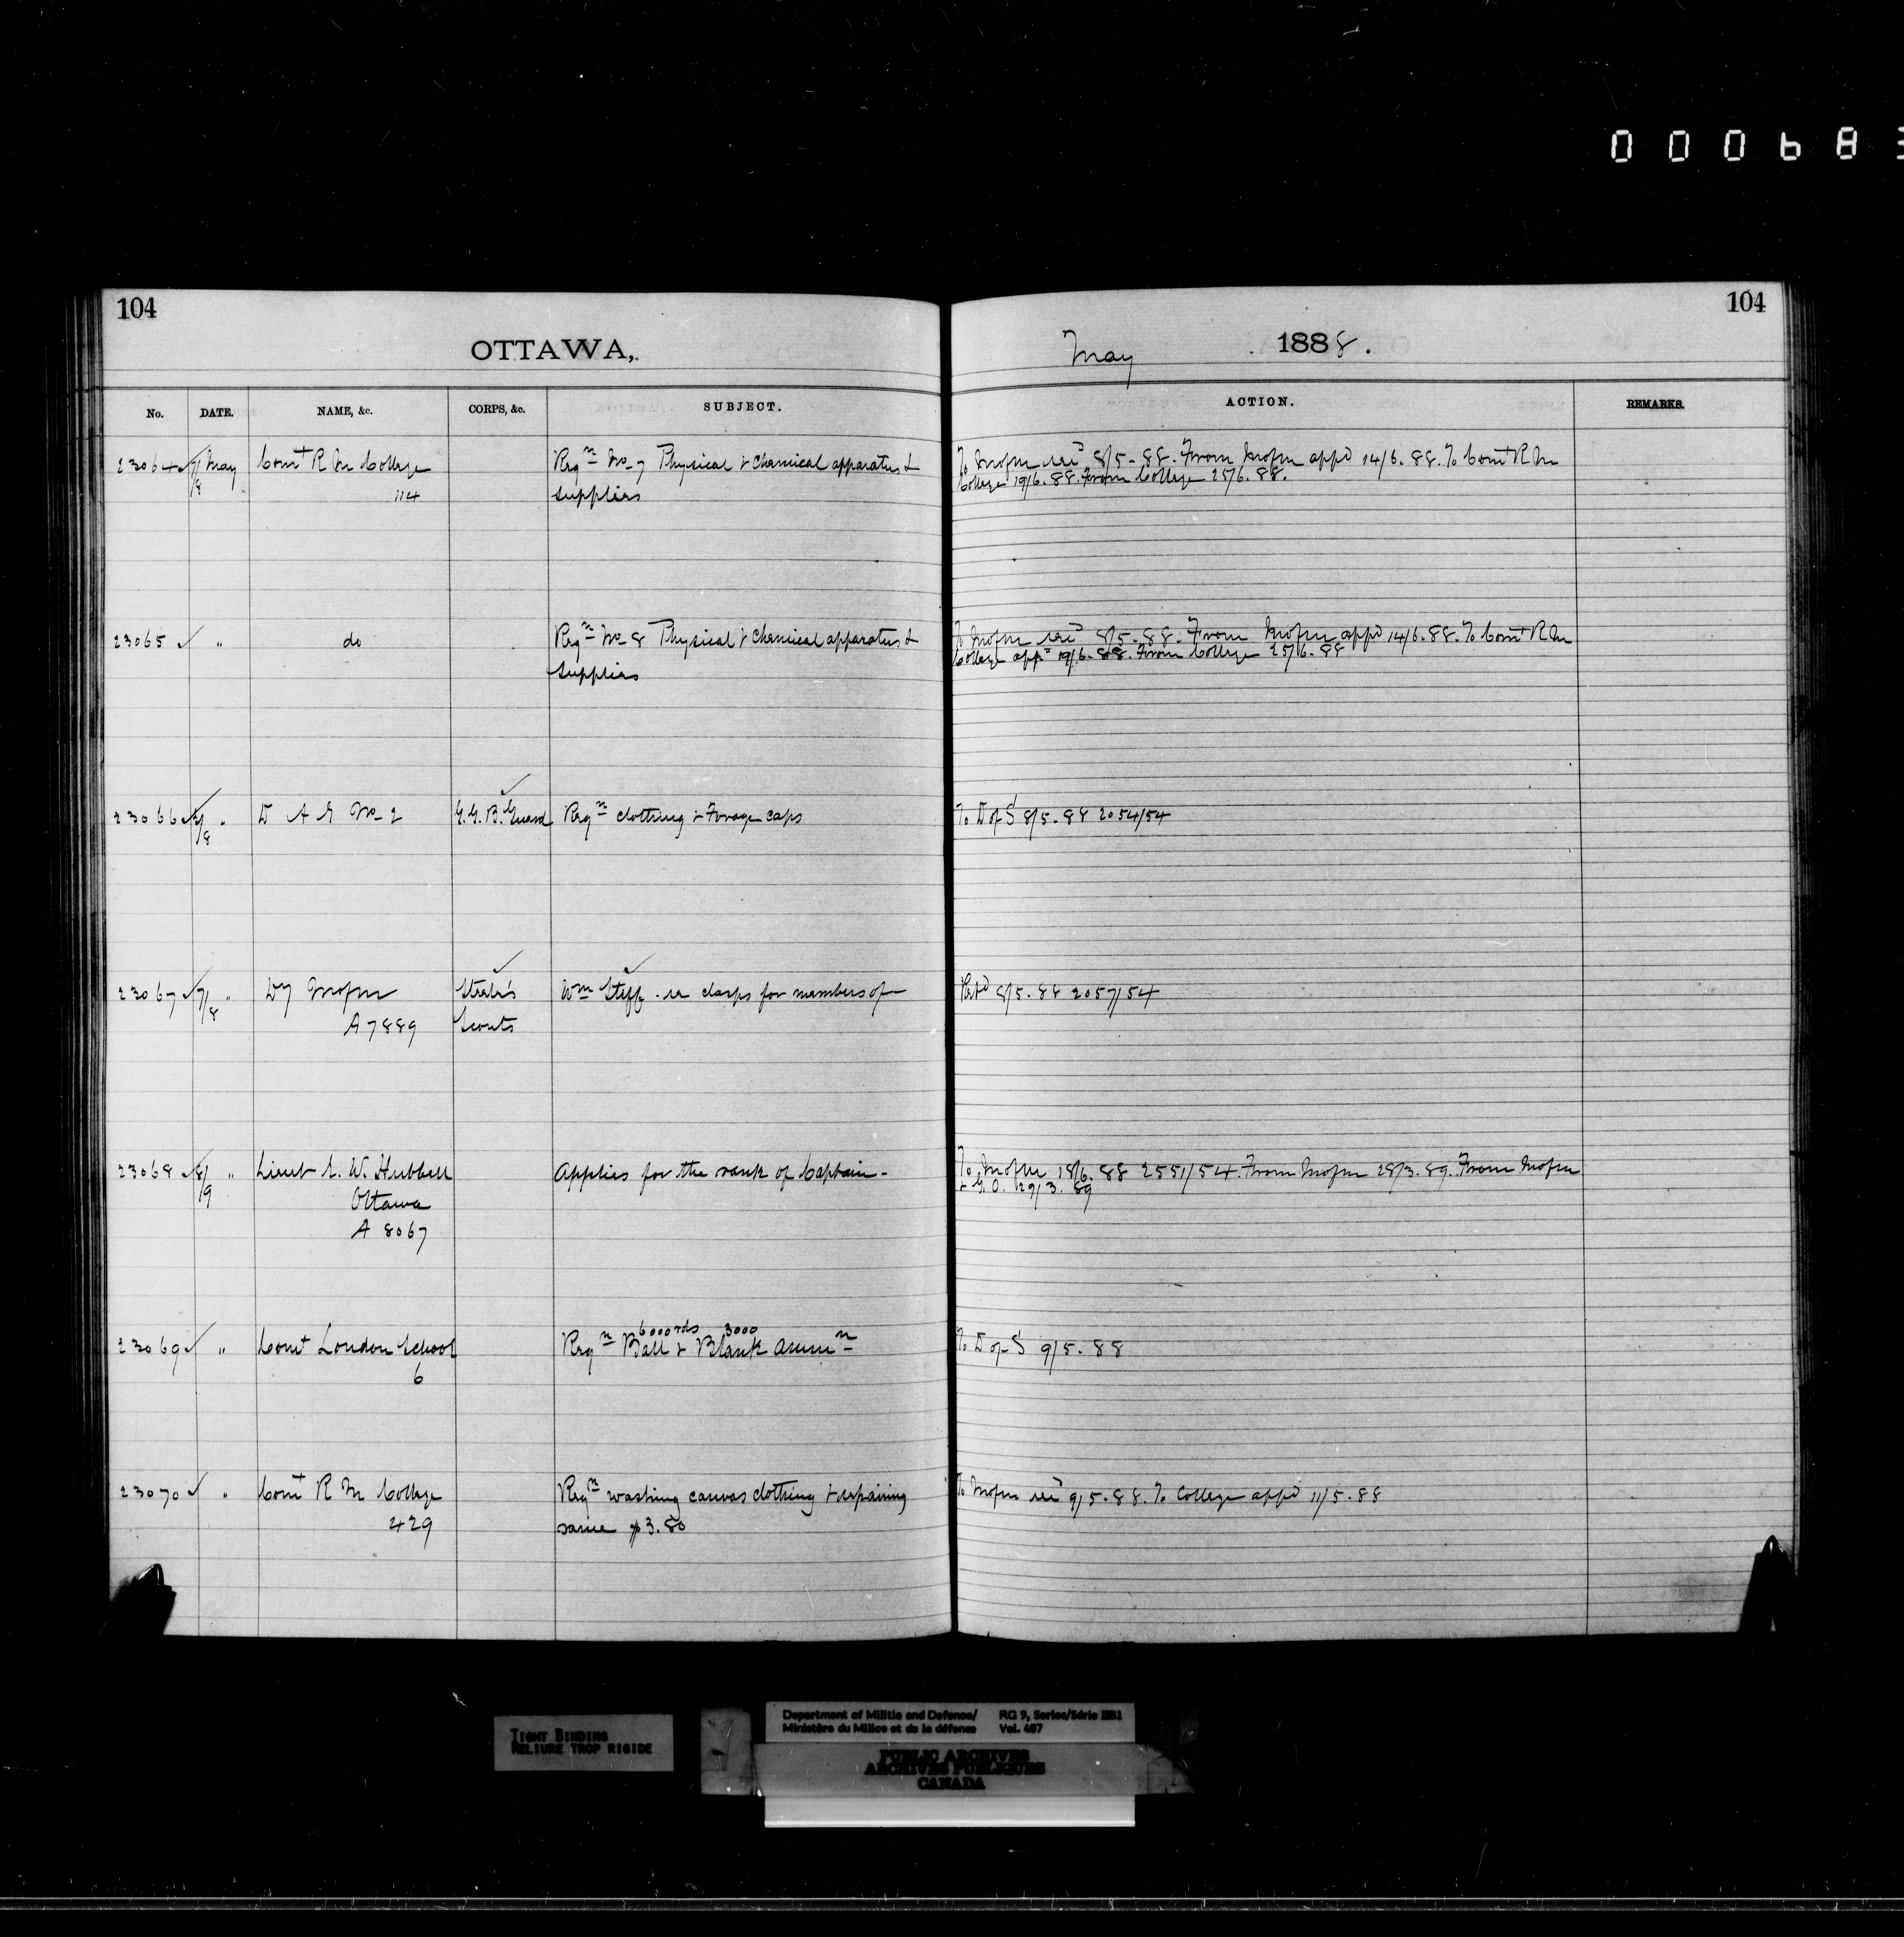 000683
104
104
OTTAWA,
May 1888.
No. DATE. NAME, &c. CORPS, &c. SUBJECT. ACTION. REMARKS.
23064 ✓ 7/8 May Comt R M College Reqn No 7 Physical & Chemical apparatus & To Mofm 8/5-88. From Mofm appd 14/6.88. To Comt R M
114 supplies College 19/6.88. From College 25/6.88.
23065 ✓ " do Reqn No 8 Physical & Chemical apparatus & To Mofm 8/5-88. From Mofm appd 14/6.88. To Comt R M
supplies College appd 19/6.88. From College 25/6.88
23066 ✓ /8 " D A G No 2 G.G.B. Guard Reqn clothing & Forage caps To D of S 8/5.88 2054/54
23067 ✓ 7/8 " Dy Mofm Steele's Wm Steff. re clasps for members of Retd 8/5.88 2057/54
A 7889 Scouts
23068 ✓ 8/9 " Lieut E. W. Hubbell Applies for the rank of Captain - To Mofm 18/6.88 2551/54. From Mofm 28/3.89. From Mofm
Ottawa & G.O. 29/3.89
A 8067
6000 rds 3000
23069 ✓ " Comt London School Reqn Ball & Blank Ammn To D of S 9/5.88
6
23070 ✓ " Comt R M College Reqn washing canvas clothing & repairing To Mofm 9/5.88. To College appd 11/5.88
429 same $3.80
TIGHT BINDING
RELIURE TROP RIGIDE
Department of Militia and Defence/ RG 9, Series/Série IIB1
Ministère du Milice et de la défense Vol. 487
PUBLIC ARCHIVES
ARCHIVES PUBLIQUES
CANADA